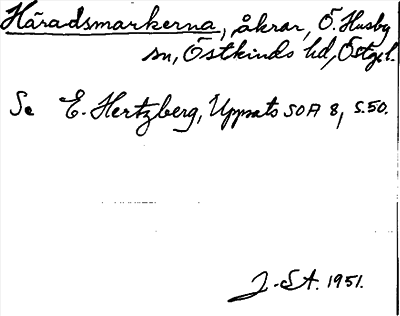 Häradsmarkerna, åkrar, Ö. Husby
sn, Östkinds hd, Östgel.
Se E. Hertzberg, Uppsats SOA 8, s. 50.
J. S-t. 1951.